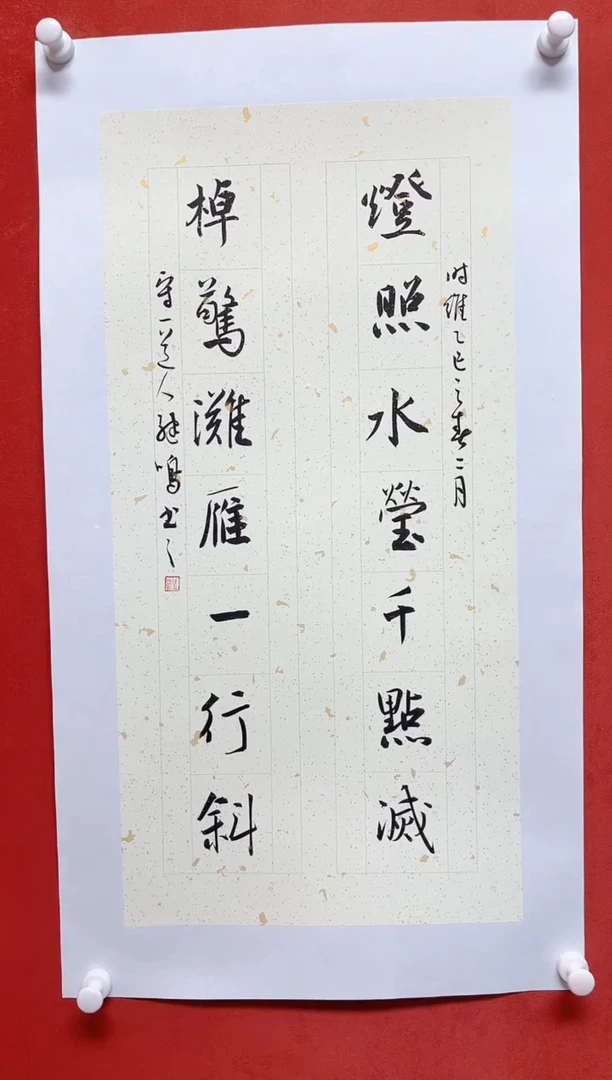 时維乙巳之春二月
燈照水螢千點滅
棹驚灘雁一行斜
守一道人鳴书之